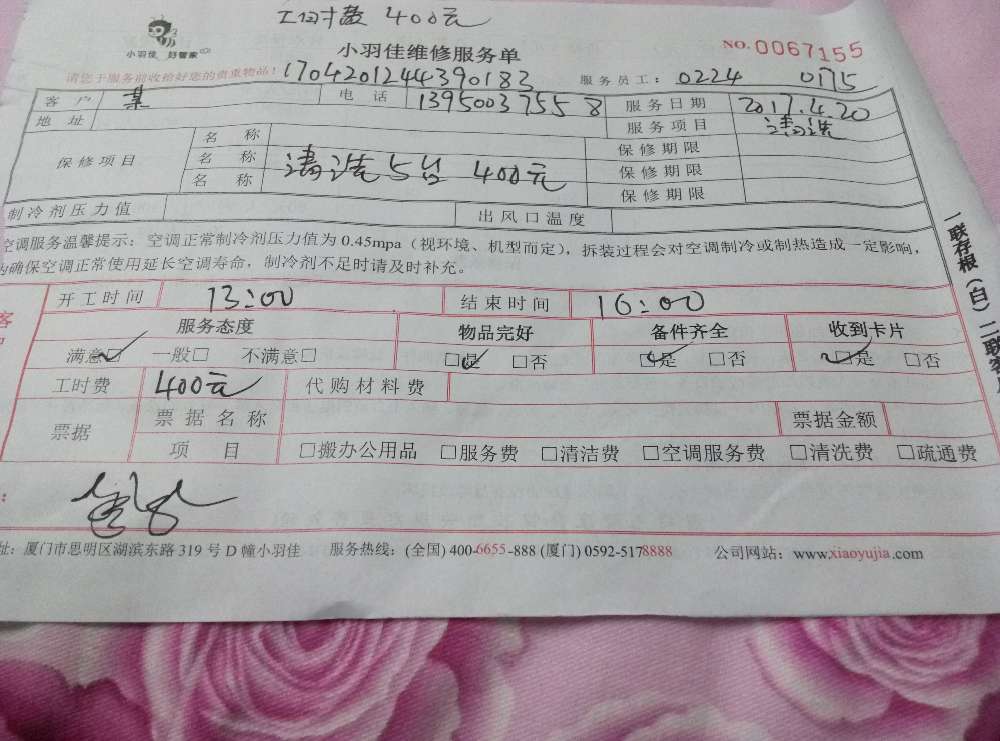 400元
小羽佳 好管家
小羽佳维修服务单
NO.0067155
请您于服务前收拾好您的贵重物品!
1704201244390183
服务员工: 0224 0175
客户 某 电话 13950037558 服务日期 2017.4.20
地址 服务项目 清洗
保修项目 名称 保修期限
名称 清洗5台 400元 保修期限
名称 保修期限
制冷剂压力值 出风口温度
空调服务温馨提示: 空调正常制冷剂压力值为 0.45mpa (视环境、机型而定), 拆装过程会对空调制冷或制热造成一定影响,
确保空调正常使用延长空调寿命, 制冷剂不足时请及时补充。
一联存根(白)二联客
客
开工时间 13:00 结束时间 16:00
服务态度 物品完好 备件齐全 收到卡片
满意☑ 一般□ 不满意□ ☑是 □否 ☑是 □否 ☑是 □否
工时费 400元 代购材料费
票据 票据名称 票据金额
项目 □搬办公用品 □服务费 □清洁费 □空调服务费 □清洗费 □疏通费
址: 厦门市思明区湖滨东路 319 号 D 幢小羽佳 服务热线: (全国) 400-6655-888 (厦门) 0592-5178888 公司网站: www.xiaoyujia.com